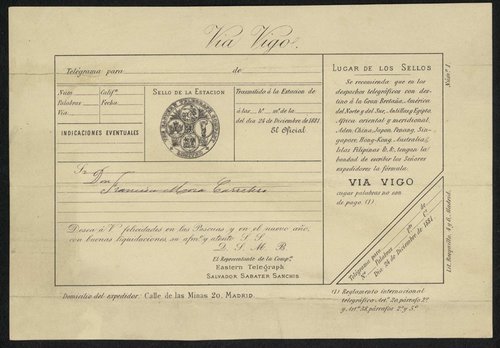 Via Vigo.
Telégrama para de
Núm Califn.
Palabras Fecha
Via
INDICACIONES EVENTUALES
SELLO DE LA ESTACION
Trasmitido á la Estacion de
á las, hs. ms. de la
del dia 24 de Diciembre de 1881.
El Oficial
LUGAR DE LOS SELLOS
Se recomienda que en los
despachos telegráficos con des-
tino á la Gran Bretaña, América
del Norte y del Sur, Antillas, Egipto
Africa oriental y meridional,
Aden, China, Japon, Penang, Sin-
gapore, Hong-Kong, Australia,
Islas Filipinas &, &, tengan la
bondad de escribir los Señores
expedidores la fórmula.
VIA VIGO
cuyas palabras no son
de pago. (1)
Núm. 1.
Sr. Don
Francisco Maria
Desea á V. felicidades en las Pascuas y en el nuevo año,
con buenas liquidaciones su afmo. y atento S. S.
Q. S. M. B.
El Representante de la Compa.
Eastern Telegraph
SALVADOR SABATER SANCHIS
Telégrama para
No. Palabras
Dia 24 de Diciembre de 1881
Madrid.
Domicilio del expedidor: Calle de las Minas 20. MADRID
(1) Reglamento internacional
telegráfico Arto. 20, párrafo 2o.
y Arto. 58, párrafos 2o. y 5o.